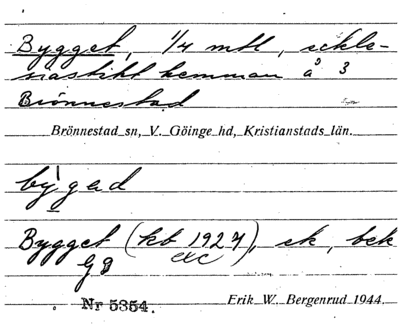 Bygget, 1/4 mtl, eckle-
siastikt hemman å 3
Brönnestad
Brönnestad sn, V. Göinge hd, Kristianstads län.
býgad
Bygget (kb 1927), ek, bek
etc
GB
Nr 5354.
Erik W. Bergenrud 1944.